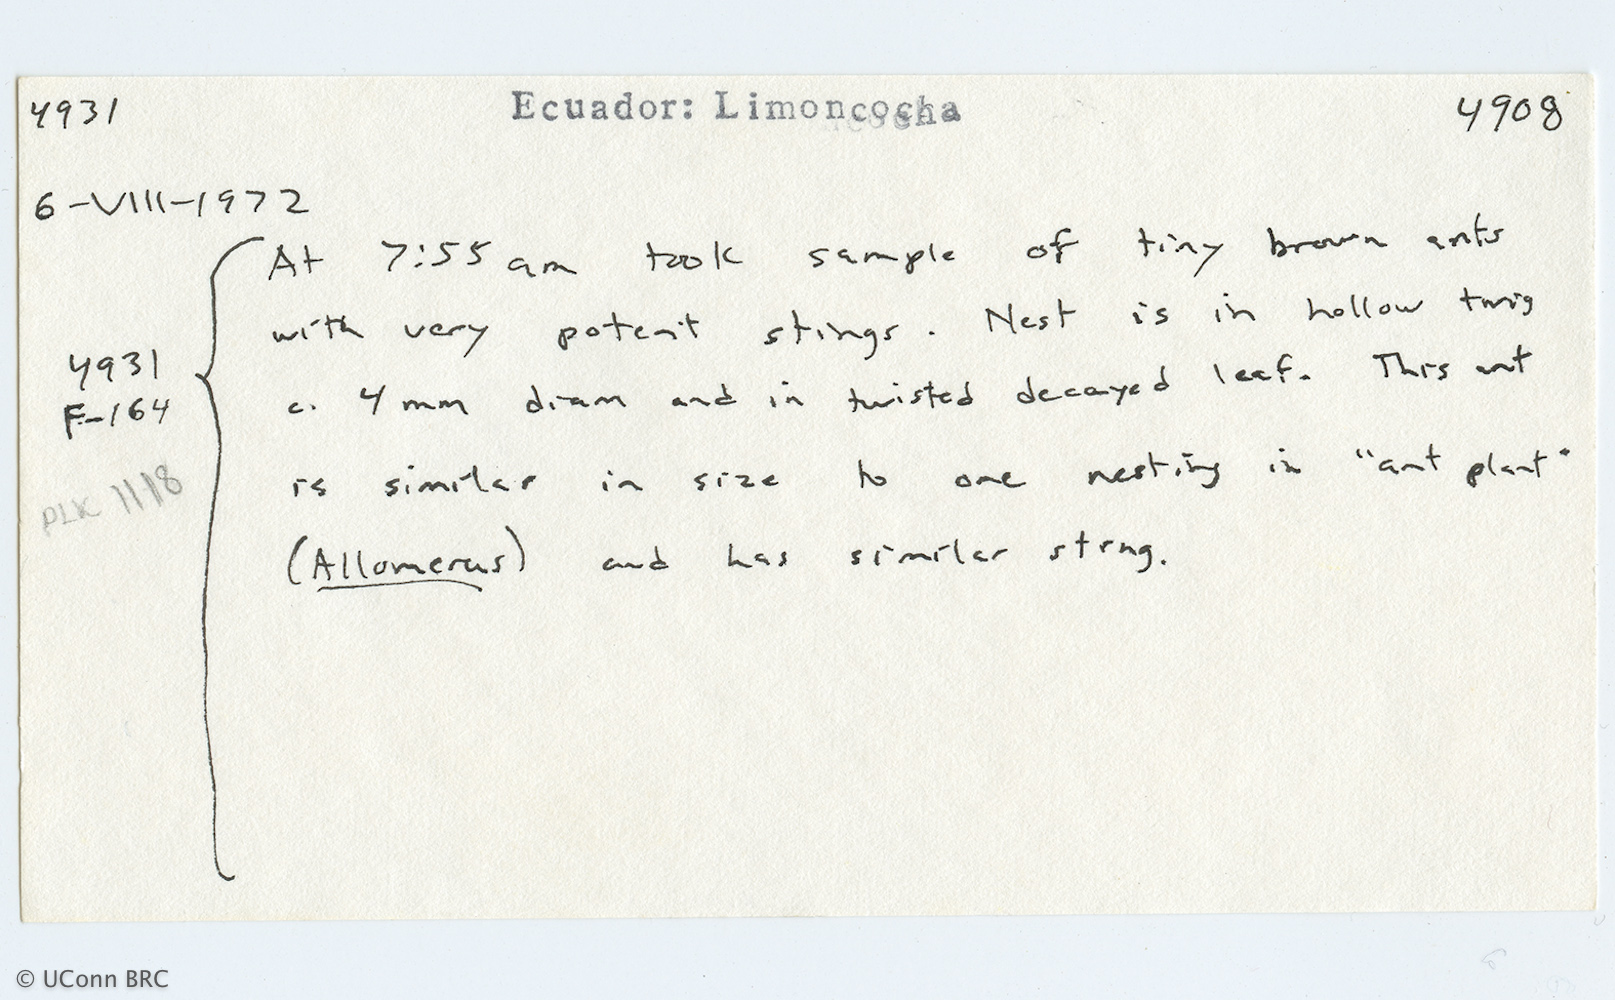 4931 Ecuador: Limoncocha 4908
6-VIII-1972
At 7:55 am took sample of tiny brown ants
with very potent stings. Nest is in hollow twig
4931
c. 4 mm diam and in twisted decayed leaf. This ant
F-164
is similar in size to one nesting in "ant plant"
PLK 1118
(Allomerus) and has similar sting.
© UConn BRC